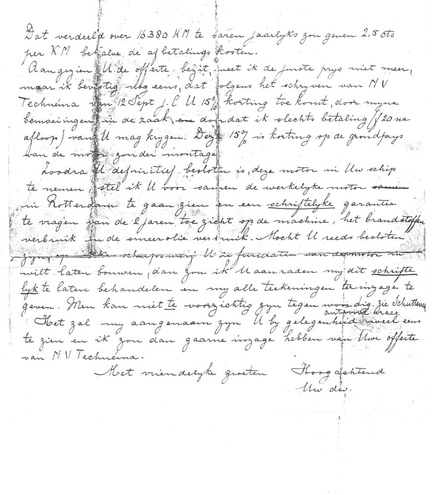 Dat verdeeld over 16380 KM te varen jaarlyks zou geven 2.5 cts
per KM behalve de afbetalings kosten.
Aangezien U de offerte bezit, weet ik de juiste prys niet meer,
maar ik bevestig nog eens, dat volgens het schryven van NV
Techneina van 12 Sept j.l. U 15% korting toe komt, door myne
bemoeiingen in de zaak, en doordat ik slechts betaling (20 na
afloop) van U mag krygen. Deze 15% is korting op de grondprys
van de motor zonder montage.
Zoodra U definitief besloten is, deze motor in Uw schip
te nemen, stel ik U voor samen de werkelyke motor
in Rotterdam te gaan zien en een schriftelyke garantie
te vragen van de 2 jaren toezicht op de machine, het brandstoffen
verbruik en de smeerolie verbruik. Mocht U reeds besloten
op scheepswerf U ze fundatie van de motor
wilt laten bouwen, dan zou ik U aanraden my dit schrifte
lyk te laten behandelen en my alle teekeningen ter inzage te
geven. Men kan niet te voorzichtig zyn tegen zie Schuttevaer
Het zal my aangenaam zyn U by gelegenheid eens
te zien en ik zou dan gaarne inzage hebben van Uwe offerte
van NV Techneina.
Met vriendelyke groeten Hoogachtend
Uw dw.